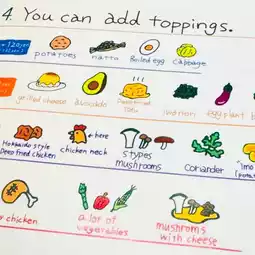 4. You can add toppings.
+120yen
potatoes natto Boiled egg cabbage
grilled cheese avocado Deep-fried tofu eggplant
← here
Hokkaido style Deep Fried chicken chicken neck 5 types mushrooms coriander "imo
(potat
chicken a lot of vegetables mushroms with cheese